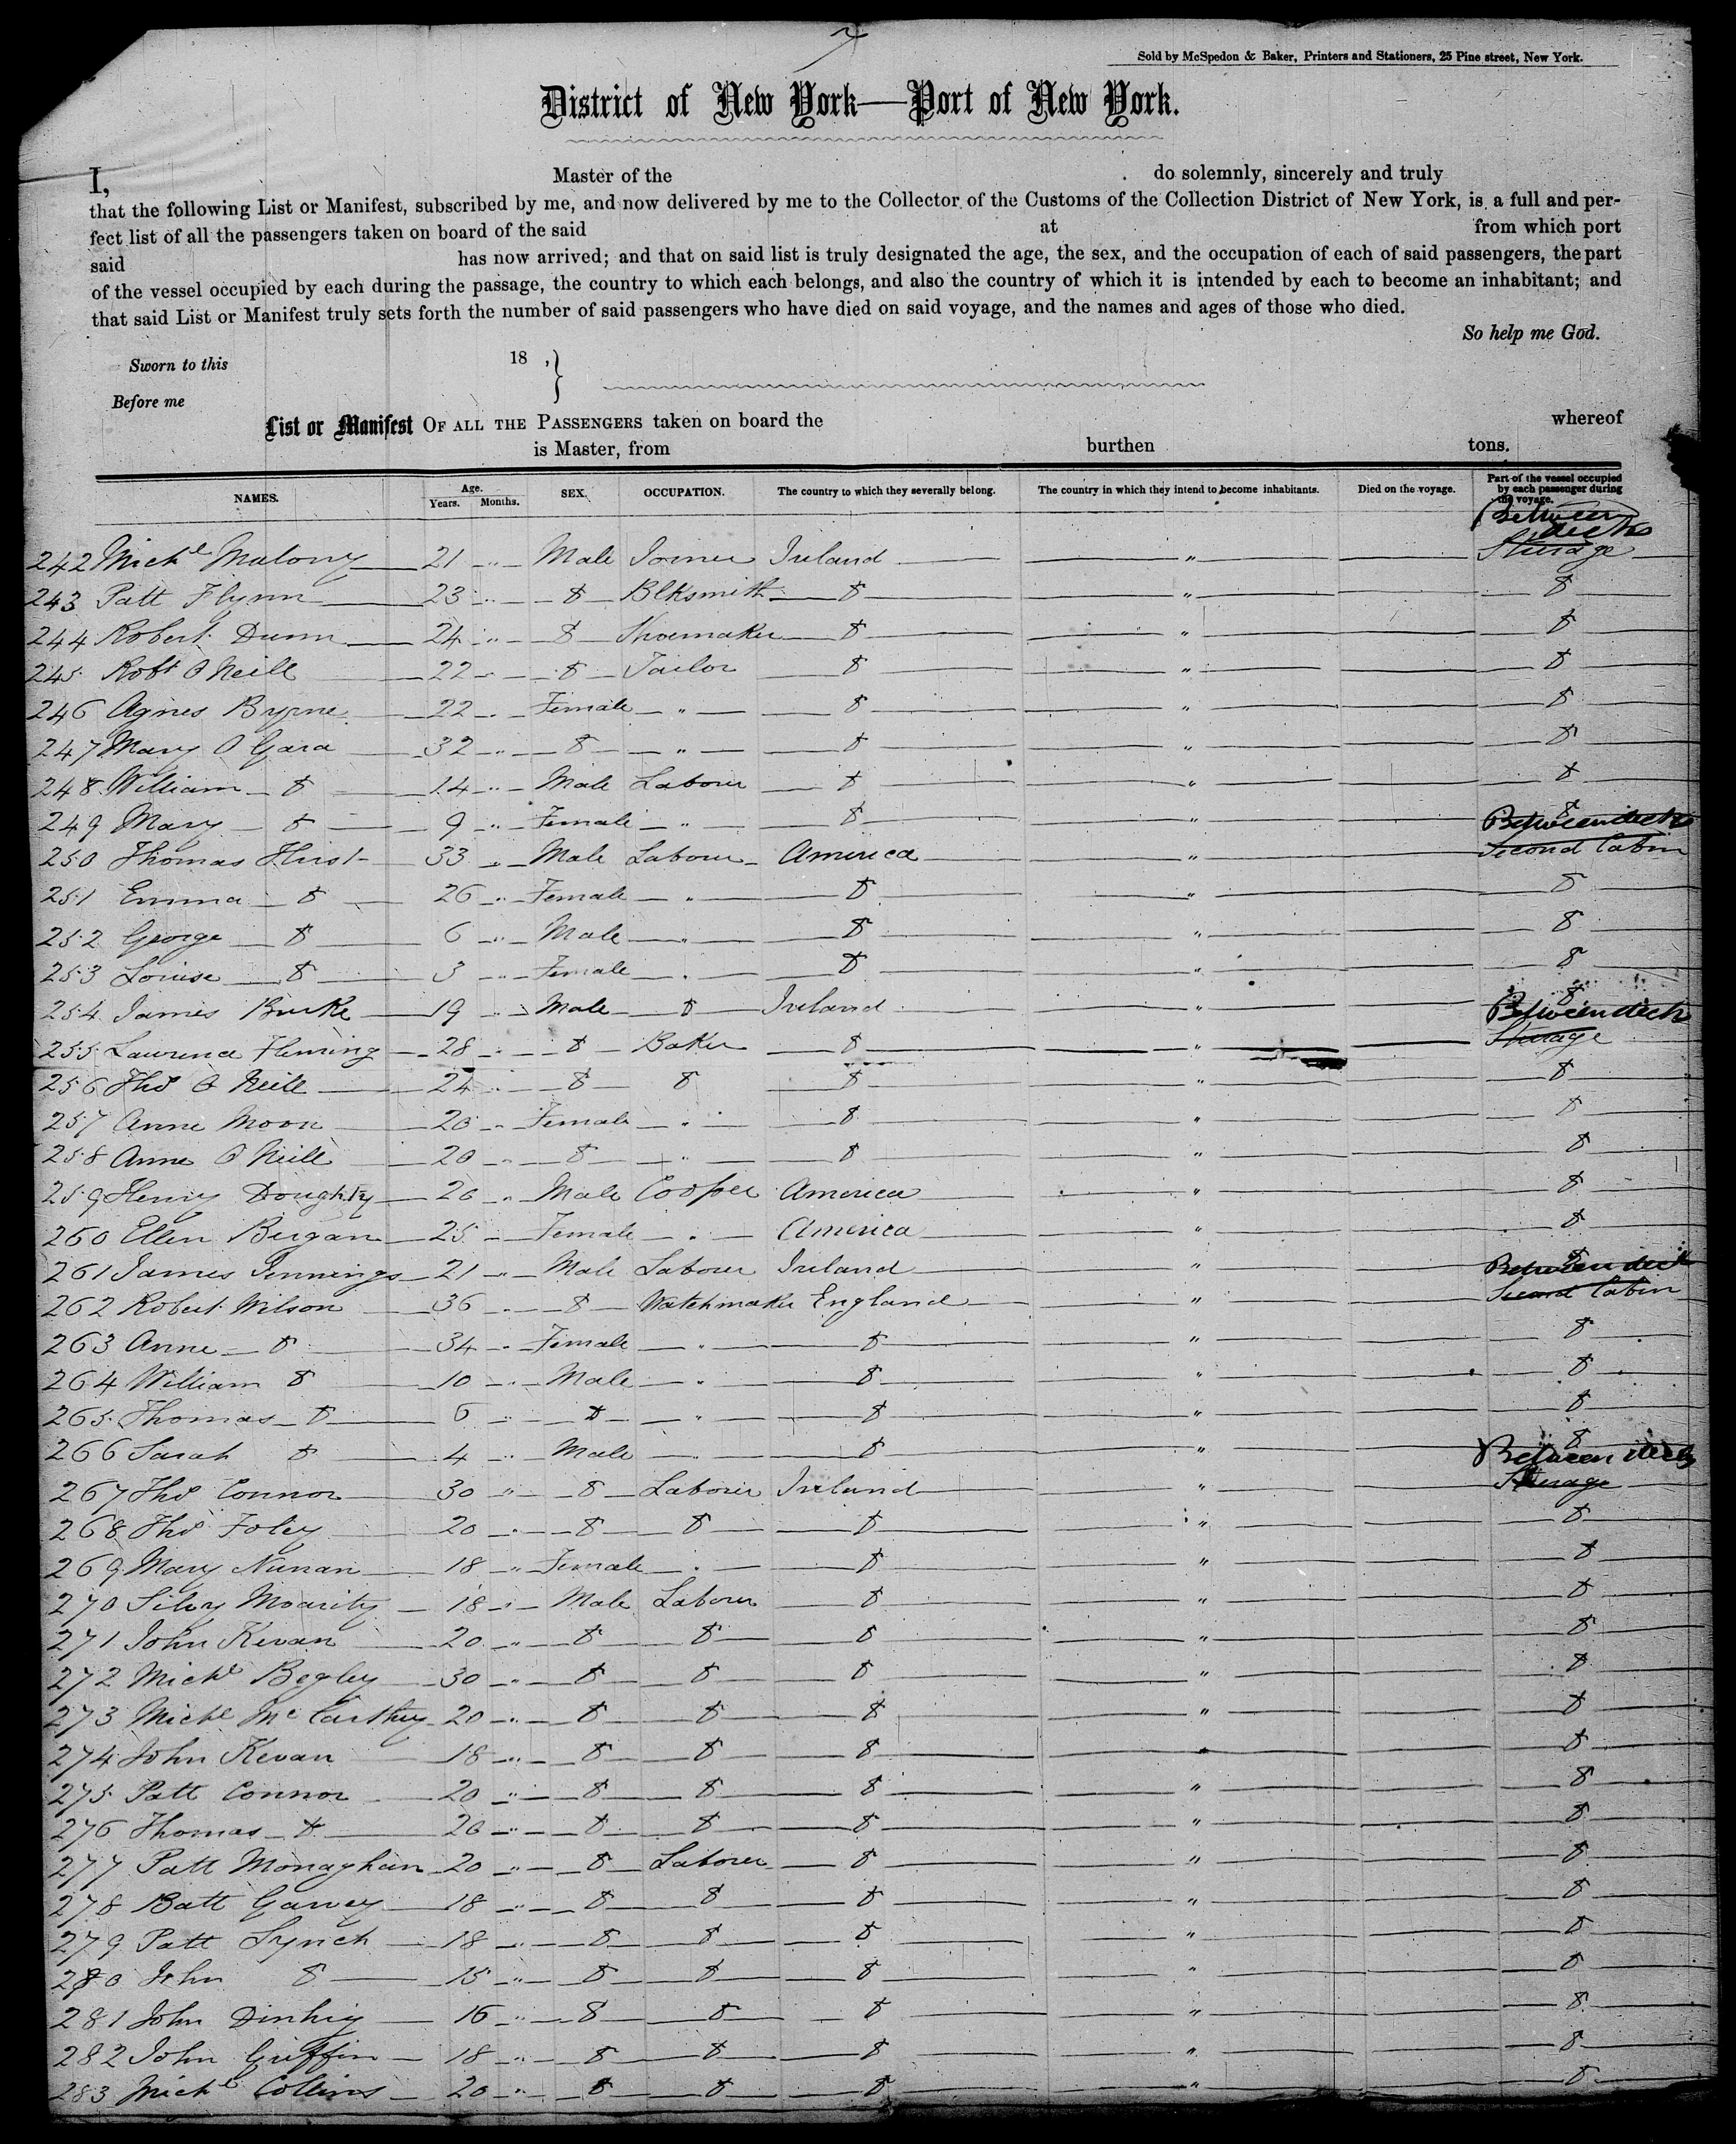 Sold by McSpedon & Baker, Printers and Stationers, 25 Pine street, New York.
District of New York—Port of New York.
I, Master of the do solemnly, sincerely and truly
that the following List or Manifest, subscribed by me, and now delivered by me to the Collector of the Customs of the Collection District of New York, is a full and per-
fect list of all the passengers taken on board of the said at from which port
said has now arrived; and that on said list is truly designated the age, the sex, and the occupation of each of said passengers, the part
of the vessel occupied by each during the passage, the country to which each belongs, and also the country of which it is intended by each to become an inhabitant; and
that said List or Manifest truly sets forth the number of said passengers who have died on said voyage, and the names and ages of those who died.
So help me God.
Sworn to this 18 , }
Before me
List or Manifest OF ALL THE PASSENGERS taken on board the whereof
is Master, from burthen tons.
NAMES. Age. Years. Months. SEX. OCCUPATION. The country to which they severally belong. The country in which they intend to become inhabitants. Died on the voyage. Part of the vessel occupied by each passenger during the voyage.
Between decks
242 Michl Malony 21 " Male Joiner Ireland " Sturage
243 Patt Flynn 23 " do Blksmith do " do
244 Robert Dunn 24 " do Shoemaker do " do
245 Robt O Neill 22 " do Tailor do " do
246 Agnes Byrne 22 " Female " do " do
247 Mary O Gara 32 " do " do " do
248 William do 14 " Male Labourer do " do
249 Mary do 9 " Female " do " do
Between decks
250 Thomas Hirst 33 " Male Labourer America " Second Cabin
251 Emma do 26 " Female " do " do
252 George do 6 " Male " do " do
253 Louise do 3 " Female " do " do
254 James Burke 19 " Male do Ireland " do
Between deck
255 Lawrence Fleming 28 " do Baker do " Sturage
256 Thos O Neill 24 " do do do " do
257 Anne Moon 20 " Female " do " do
258 Anne O Neill 20 " do " do " do
259 Henry Doughty 20 " Male Cooper America " do
260 Ellen Bergan 25 " Female " America " do
261 James Jennings 21 " Male Labourer Ireland " do
Between deck
262 Robert Wilson 36 " do Watchmaker England " Second Cabin
263 Anne do 34 " Female " do " do
264 William do 10 " Male " do " do
265 Thomas do 6 " do " do " do
266 Sarah do 4 " Male " do " do
Between decks
267 Thos Connor 30 " do Labourer Ireland " Sturage
268 Thos Foley 20 " do do do " do
269 Mary Nunan 18 " Female " do " do
270 Silvy Moarity 18 " Male Labourer do " do
271 John Kevan 20 " do do do " do
272 Michl Begley 30 " do do do " do
273 Michl McCarthy 20 " do do do " do
274 John Kevan 18 " do do do " do
275 Patt Connor 20 " do do do " do
276 Thomas do 20 " do do do " do
277 Patt Monaghan 20 " do Labourer do " do
278 Batt Garvey 18 " do do do " do
279 Patt Lynch 18 " do do do " do
280 John do 15 " do do do " do
281 John Dinhig 16 " do do do " do
282 John Griffin 18 " do do do " do
283 Michl Collins 20 " do do do " do